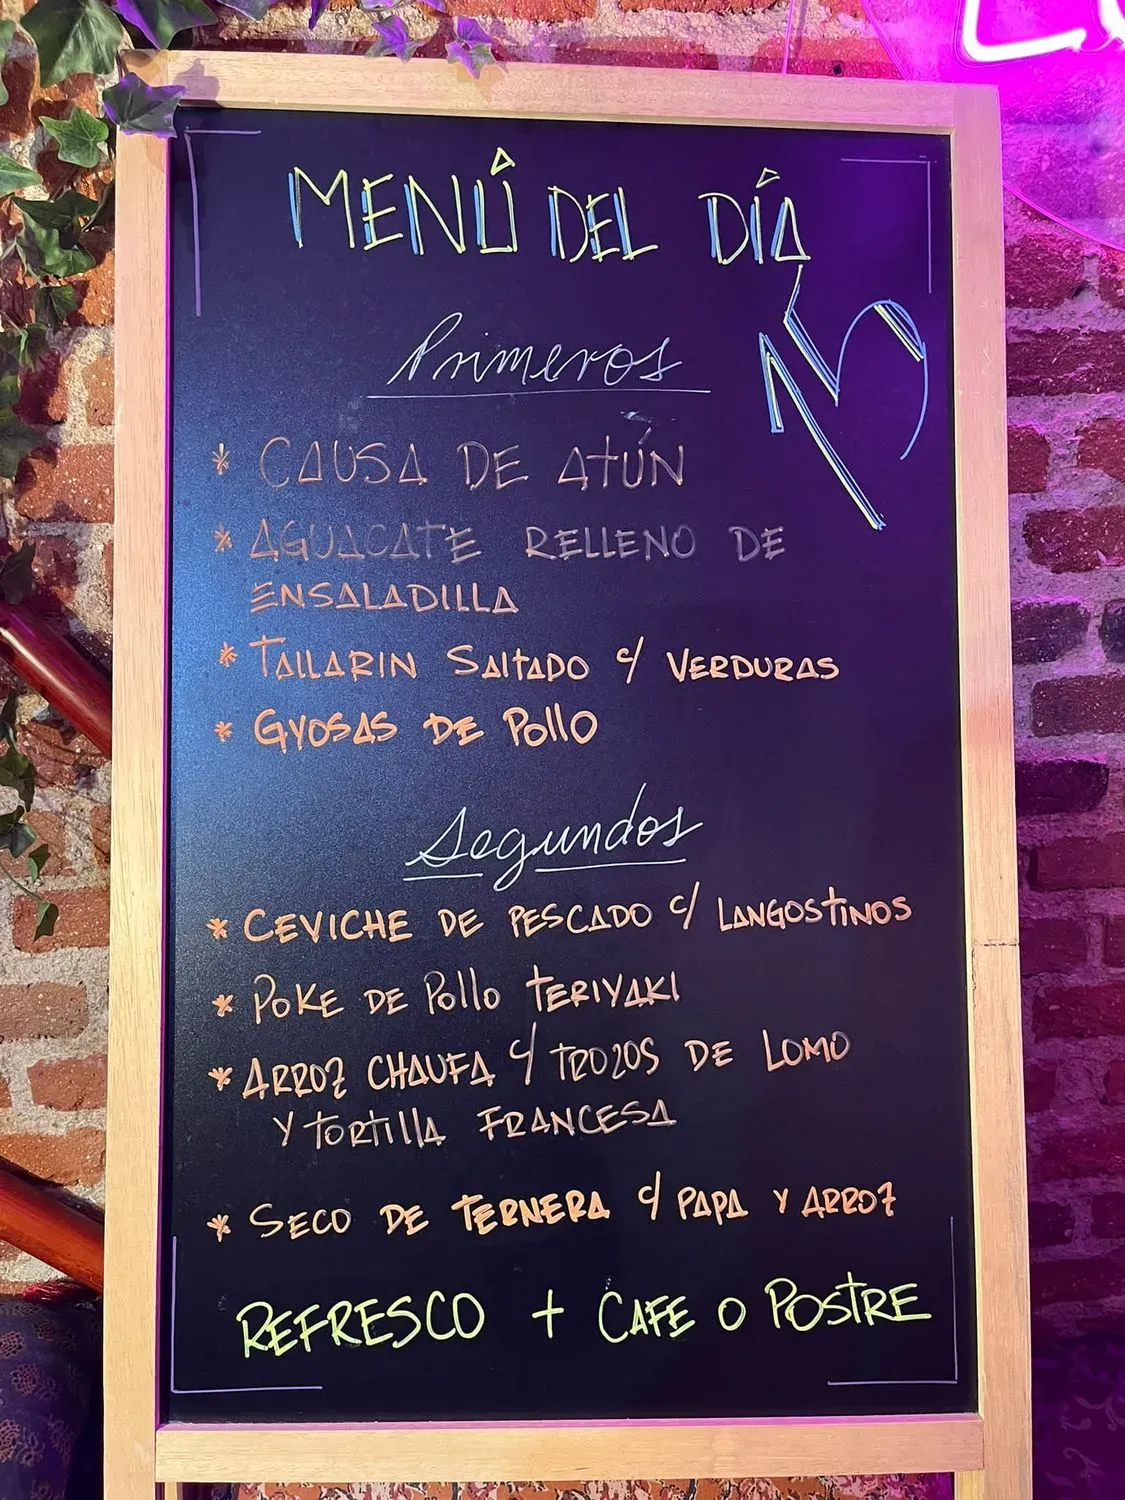 MENÚ DEL DÍA
15
Primeros
* CAUSA DE ATÚN
* AGUACATE RELLENO DE
ENSALADILLA
* TALLARIN SALTADO c/ VERDURAS
* GYOSAS DE POLLO
Segundos
* CEVICHE DE PESCADO c/ LANGOSTINOS
* POKE DE POLLO TERIYAKI
* ARROZ CHAUFA c/ TROZOS DE LOMO
Y TORTILLA FRANCESA
* SECO DE TERNERA c/ PAPA Y ARROZ
REFRESCO + CAFE O POSTRE